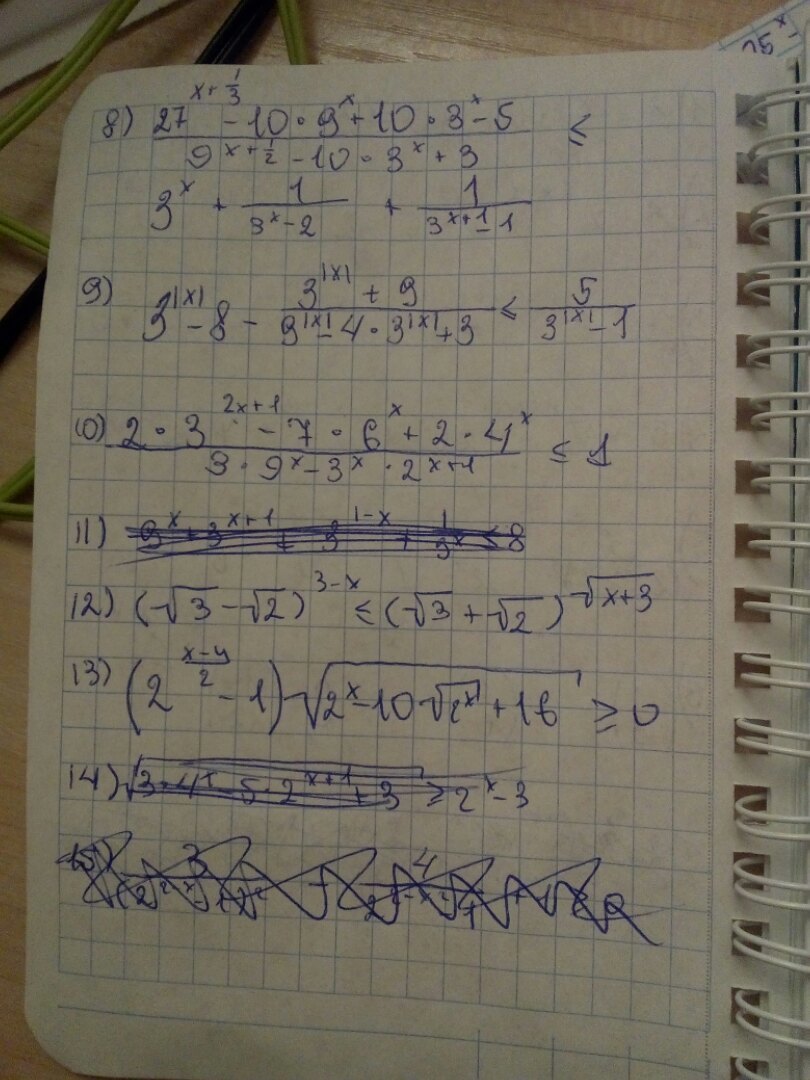 8) (27^(x+1/3) - 10·9^x + 10·3^x - 5) / (9^(x+1/2) - 10·3^x + 3) ≤
3^x + 1/(3^x - 2) + 1/(3^(x+1) - 1)
9) 3^|x| - 8 - (3^|x| + 9) / (9^|x| - 4·3^|x| + 3) ≤ 5/(3^|x| - 1)
10) (2·3^(2x+1) - 7·6^x + 2·4^x) / (3·9^x - 3^x·2^(x+1)) ≤ 1
11) 9^x + 3^(x+1) + 3^(1-x) + 1/9^x ≤ 8
12) (√3 - √2)^(3-x) ≤ (√3 + √2)^√(x+3)
13) (2^((x-4)/2) - 1)√(2^x - 10√(2^x) + 16) ≥ 0
14) √(3·4^x - 5·2^(x+1) + 3) ≥ 2^x - 3
15)
25^x -